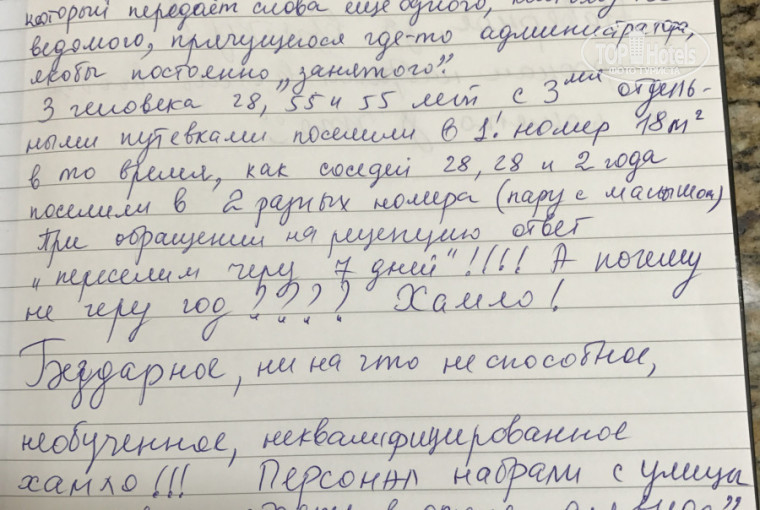 который передаёт слова ещё одного,
ведомого, прячущегося где-то администратора,
якобы постоянно „занятого".
3 человека 28, 55 и 55 лет с 3мя отдель-
ными путевками поселили в 1! номер 18м²
в то время, как соседей 28, 28 и 2 года
поселили в 2 разных номера (пару с малышом)
При обращении на рецепцию ответ
„переселим черу 7 дней"!!!! А почему
не черу год ???? Хамло!
Бездарное, ни на что не способное,
необученное, неквалифицированное
хамло!!! Персонал набрали с улицы
TOPHotels
ФОТО ТУРИСТА